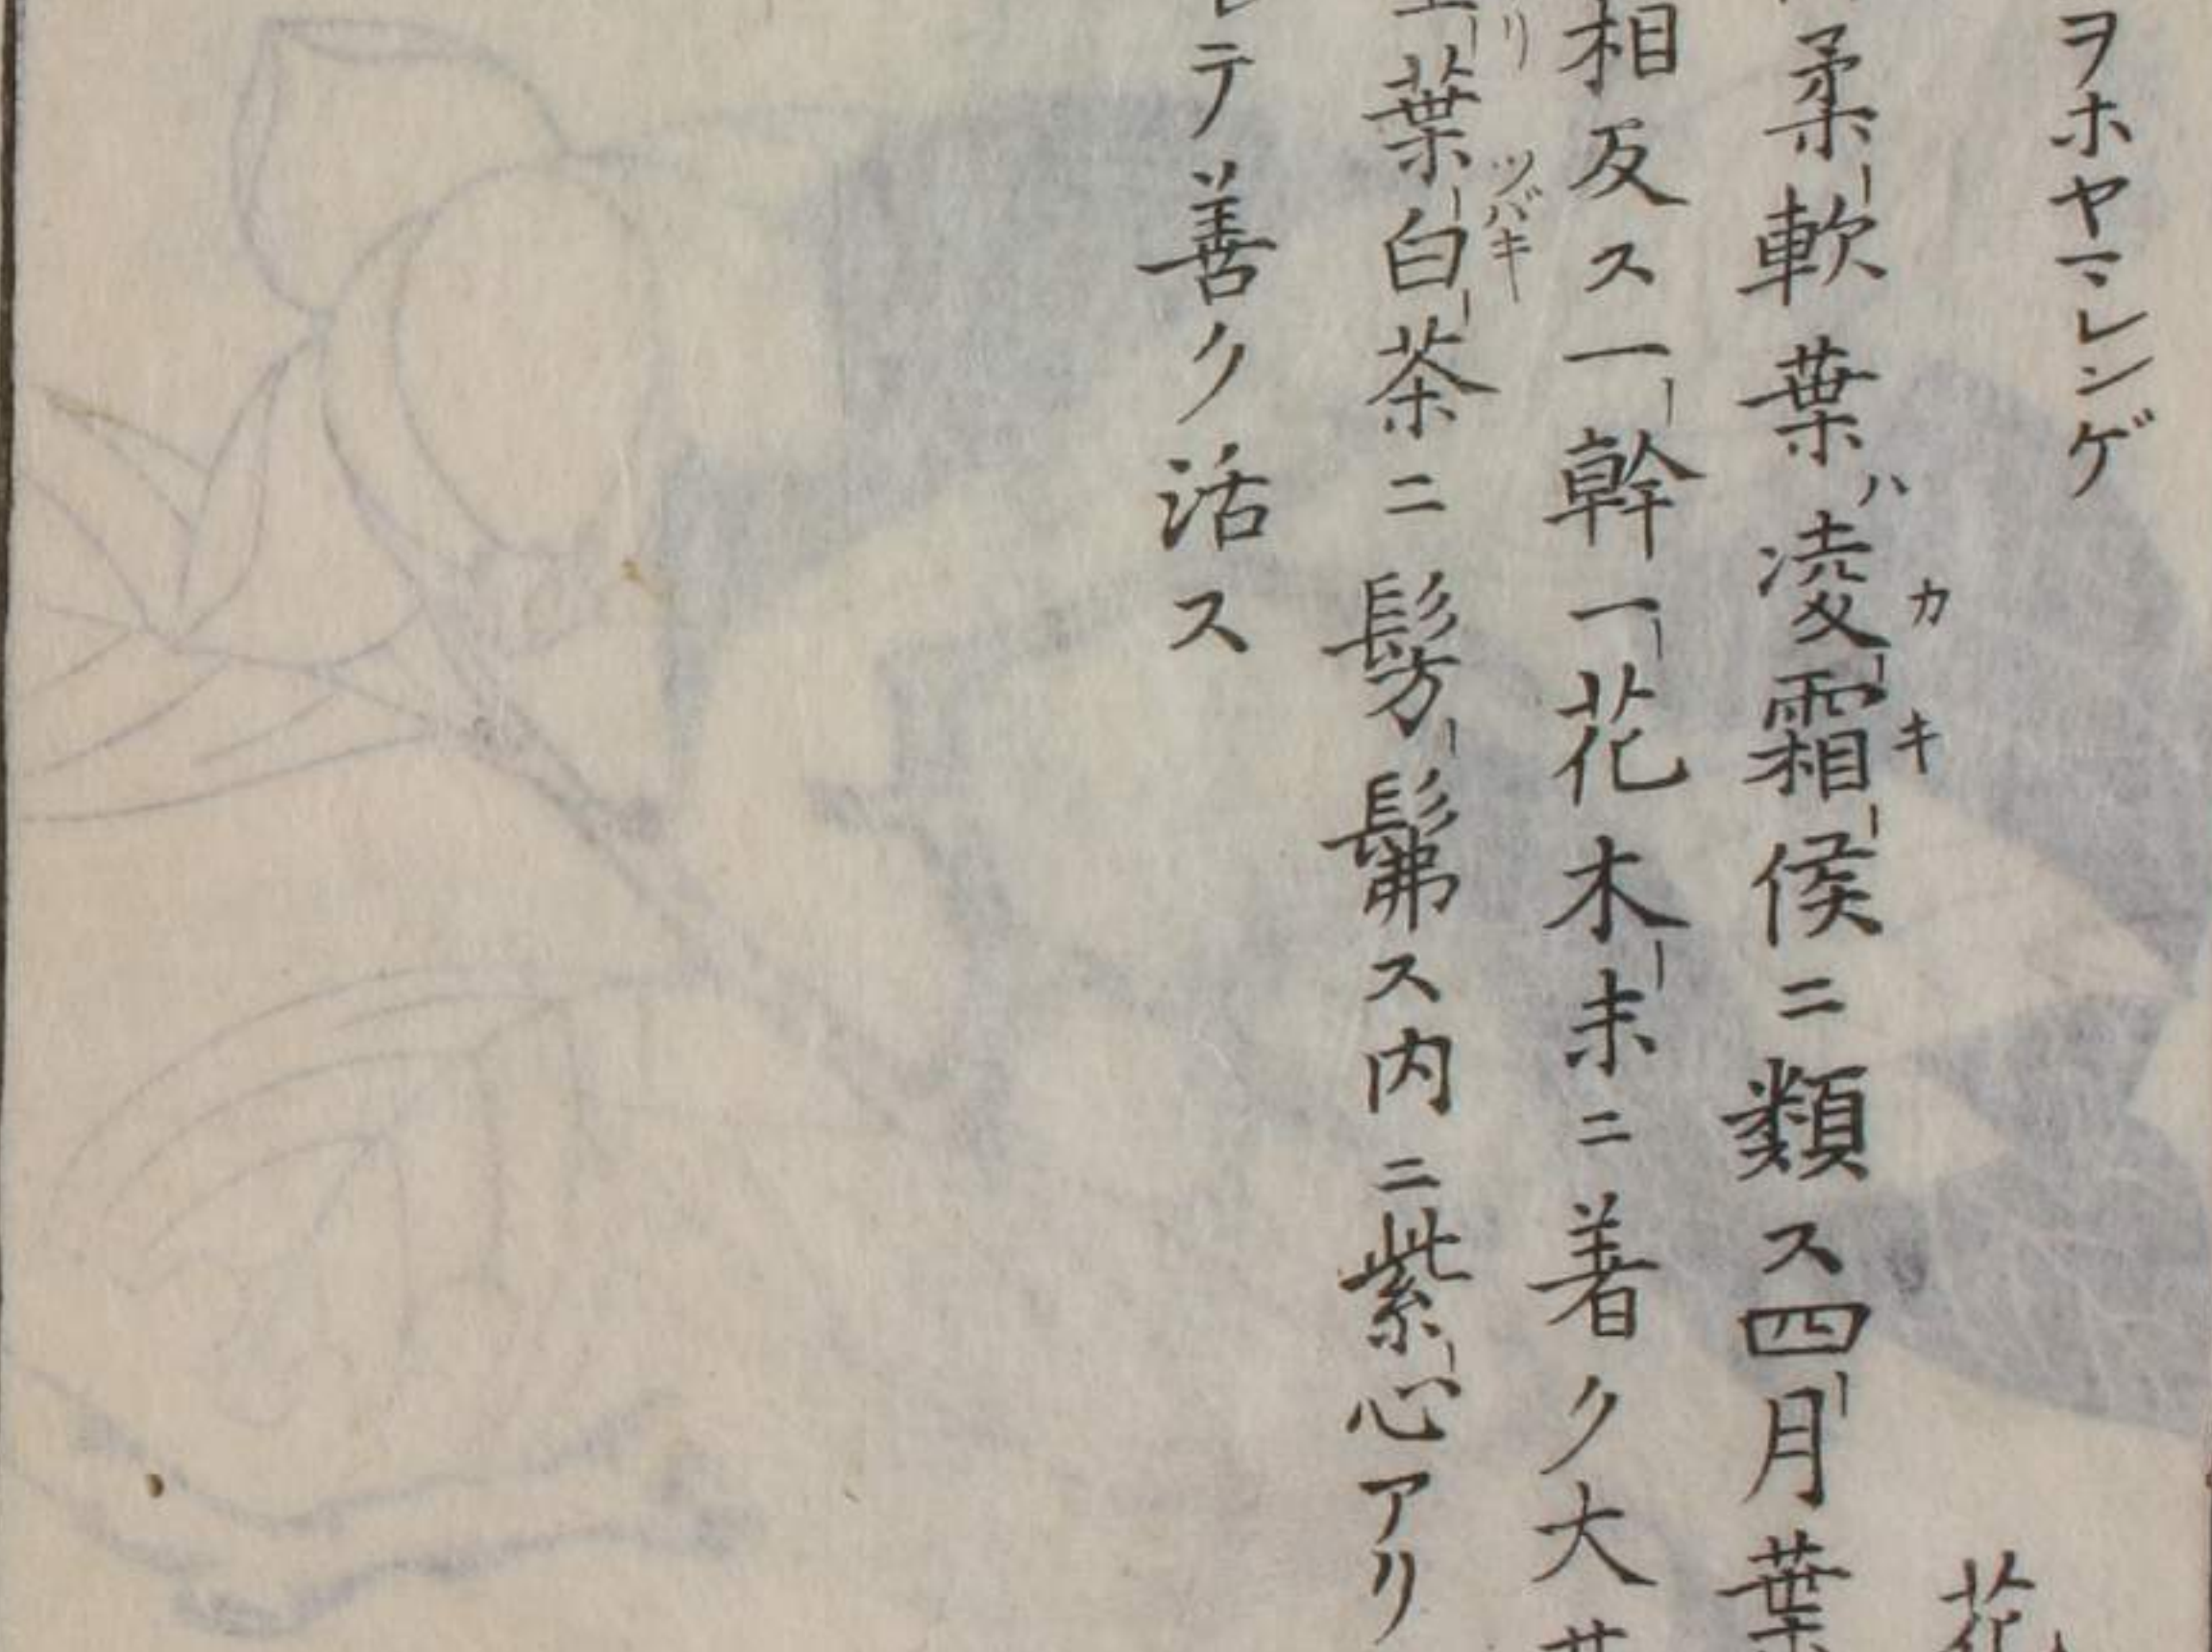 ヲホヤマレンゲ
花
柔軟葉ハ凌霜侯ニ類ス四月葉
カキ
相反ス一幹一花木末ニ着ク大
葉白茶ニ髣髴ス内ニ紫心アリ
リ ツバキ
テ善ク活ス